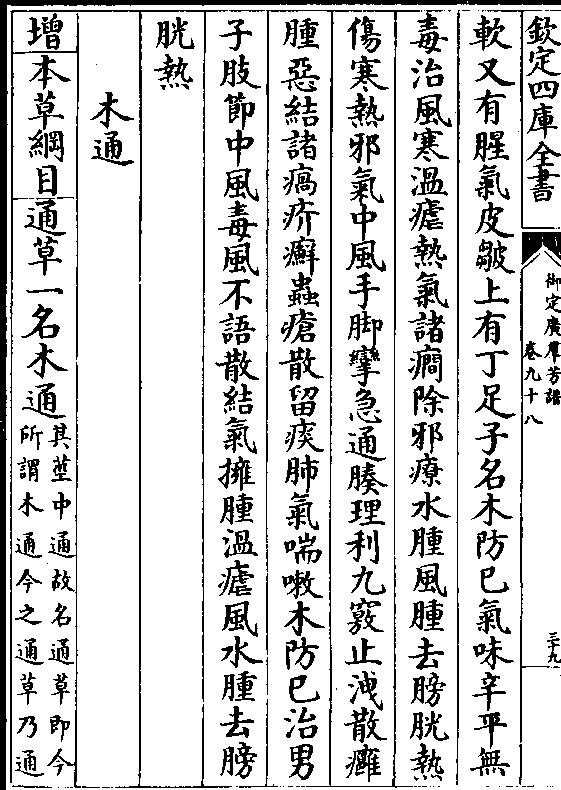 欽定四庫全書
御定廣羣芳譜
卷九十八
三十九
軟又有腥氣皮皺上有丁足子名木防巳氣味辛平無
毒治風寒温瘧熱氣諸癎除邪療水腫風腫去膀胱熱
傷寒熱邪氣中風手脚攣急通腠理利九竅止洩散癰
腫惡結諸瘑疥癬蟲瘡散留痰肺氣喘嗽木防巳治男
子肢節中風毒風不語散結氣擁腫温瘧風水腫去膀
胱熱
木通
增本草綱目通草一名木通其莖中通故名通草即今
所謂木通今之通草乃通